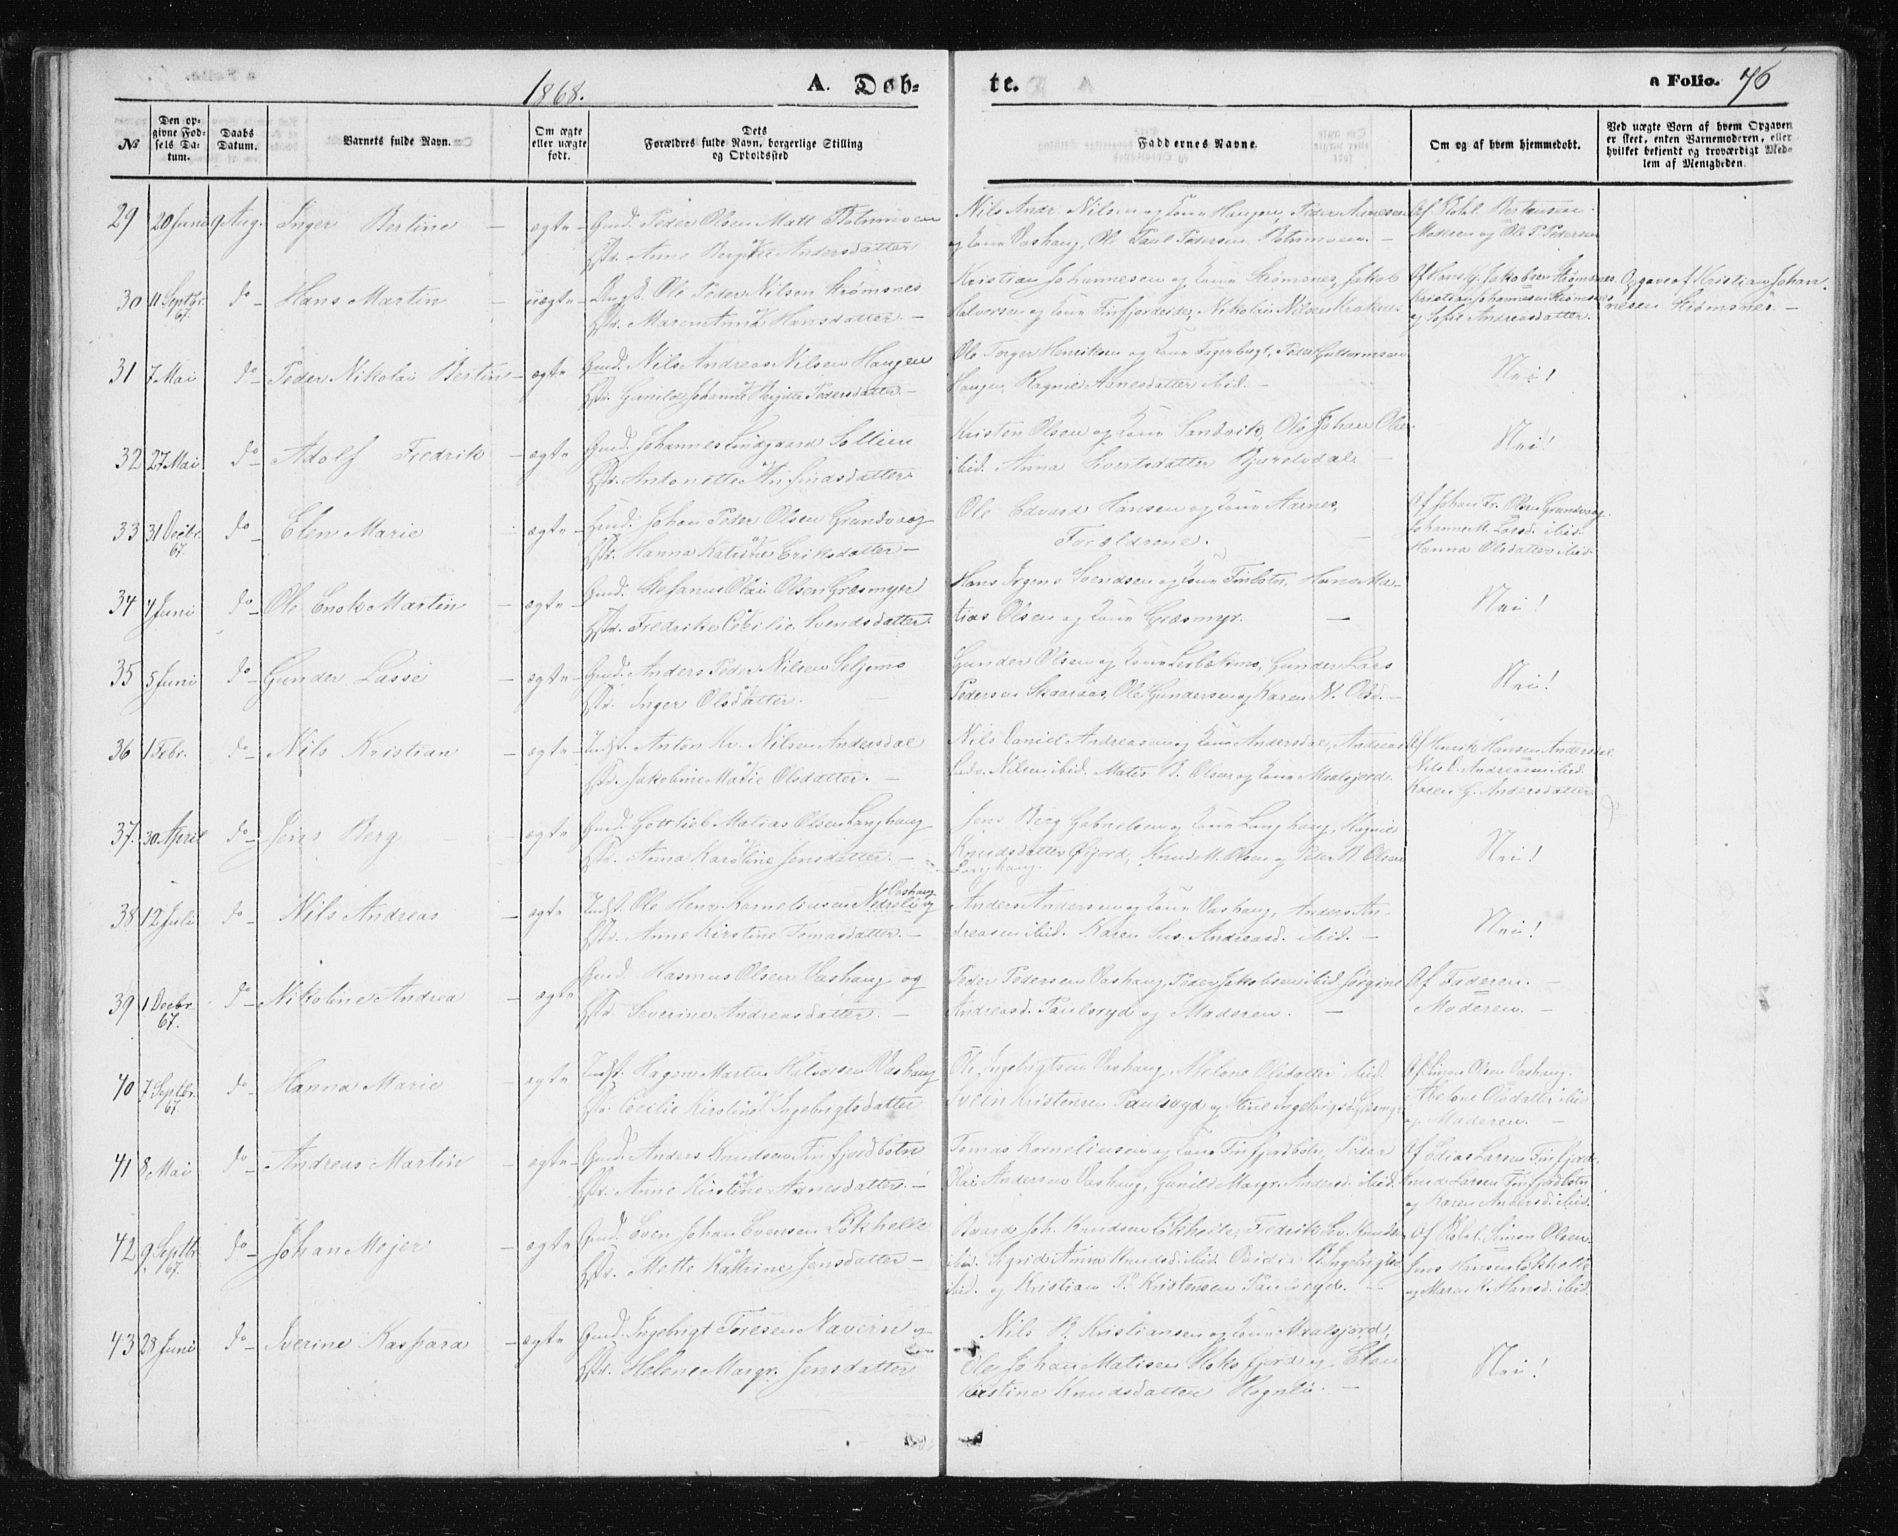 1868.
A. Døb-
te.
a Folio. 76
No
Den op-
givne Fød-
sels Da-
tum.
Daabs
Datum.
Varnets fulde Navn.
Om ægte
eller uægte
født.
Dets
Forældres fulde Navn, borgerlige Stilling
og Opholdsted
Faddernes Navne.
Om og af hvem hjemmedøbt.
Ved uægte Børn af hvem Opgaven
er skeet, enten Barnemoderen, eller
hvilket bekjendt og troværdigt Med-
lem af Menigheden.
29 20 Juni 9 Aug. Inger Bertine – ægte – Gmd. Peder Olsen Matt
Hstr. Anne Birgitte Andersdatter
Nils Andr Nilsen og Kone Haugen, Peder Arnesen
og Kone Vashaug, Ole Paul Pedersen
Moderen og Ole P. Pedersen
30 11 Septbr. 67. do – Hans Martin – uægte – Ungk. Ole Peder Nilsen Strømsnes
Maren Anna Hansdatter –
Kristian Johannesen og Kone Strømsnes, Jakob
Halvorsen og Kone Finfjordeide, Nikolai Nilsen
Af Hans G. Jakobsen Strømsnes
Kristian Johannesen Strømsnes
og Sofie Andreasdatter.
Opgave af Kristian Johan-
nesen Strømsnes. –
31 7 Mai do – Peder Nikolai Bertin – ægte Gmd. Nils Andreas Nilsen Haugen
Hstr. Gunild Johanna Birgitte Pedersdatter –
Ole Torger Henriksen og Kone Fagerbugt, Peder Guttormsen
Haugen, Ragnil Arnesdatter ibid. –
Nei!
32 27 Mai do – Adolf Fredrik – ægte – Gmd. Johannes Lindgaard Sollien
Hstr. Antonette Arnfindsdatter
Kristen Olsen og Kone Sandvik, Ole Johan Olsen
ibid. Anna
Nei!
33 31 Decbr. 67 do Elen Marie – ægte – Gmd. Johan Peder Olsen Grundvaag
Hstr. Hanna Katrine Eriksdatter –
Ole Edvard Hansen og Kone Aarnes,
Forældrene. –
Af Johan Fr. Olsen Grundvaag
Johanne M. Larsd. ibid.
Hanna Olsdatter ibid.
34 4 Juni do – Ole Enok Martin – ægte – Gmd. Stefanus Olai Olsen Græsmyr
Hstr. Fredrike Cecilie Svendsdatter.
Hans Jørgen Svendsen og Kone Finbotn, Hans Ma-
tias Olsen og Kone Græsmyr. –
Nei!
35 5 Juni do – Gunder Lasse – ægte – Gmd. Anders Peder Nilsen Seljemo
Hstr. Inger Olsdatter. –
Gunder Olsen og Kone, Gunder Lars
Pedersen, Ole Gundersen og Karen N. Olsd. –
Nei!
36 1 Febr. do – Nils Kristian – ægte – Indst. Anton Kr. Nilsen Andersdal
Hstr. Jakobine Marie Olsdatter. –
Nils Daniel Andreasen og Kone Andersdal, Andreas
Ludv. Nilsen ibid. Mates B. Olsen og Kone Maalsjord.
Af Henrik Hansen Andersdal
Nils D. Andreasen ibid.
Karen G. Andersdatter
37. 30. April do – Jens Berg – ægte Gmd. Gottlieb Matias Olsen Langhaug
Hstr. Anna Karoline Jensdatter. –
Jens Berg Gabrielsen og Kone Langhaug, Ragnil
Knudsdatter Øfjord, Knud M. Olsen og Peder B. Olsen
Langhaug.
Nei!
38 12 Juli do – Nils Andreas – ægte Indst. Ole Henr. Korneliusen Vashaug
Hstr. Anne Kirstine Tomasdatter. –
Anders Andersen og Kone Vashaug, Anders An-
dreasen ibid. Karen Sus. Andreasd. ibid. –
Nei!
39 1 Decbr. 67. do – Nikoline Andrea – ægte Gmd. Rasmus Olsen Vashaug og
Hstr. Severine Andreasdatter. –
Peder Pedersen Vashaug, Peder Jakobsen ibid. Jørgine
Andreasd. Paulsryd og Moderen. –
Af Faderen. –
Moderen. –
40 7 Septbr. 67. do Hanna Marie – ægte Indst. Hagen Martin Halvorsen Vashaug
Hstr. Cecilie Kirstine Ingebrigtsdatter
Ole Ingebrigtsen Vashaug, Abelone Olsdatter ibid.
Svein Kristensen Paulsryd og Stine Ingebrigtsd. Græsmyr
Af Simon Olsen Vashaug.
Abelone Olsdatter ibid
og Moderen. –
41 8 Mai do – Andreas Martin – ægte – Gmd. Anders Knudsen Finfjordbotn
Hstr. Anne Kirstine Arnesdatter. –
Tomas Korneliusen og Kone Finfjordbotn, Peder
Olai Andersen Vashaug, Gunild Margr. Andersd. ibid.
Af Edias Larsen Finfjord.
Knud Larsen Finfjordbotn
og Karen Andersd. ibid.
42 9. Septbr. 67. do – Johan Mejer – ægte – Gmd. Even Johan Evensen Løkhelle
Hstr. Mette Katrine Jensdatter –
Baard Joh. Knudsen Løkhelle, Fredrik Ev. Knudsen
ibid. Sigrid Anna Knudsd. ibid. B. Ingebrigtsd.
ibid. og Kristian P. Kristensen Paulsryd. –
Af Simon Olsen.
Jens Hansen Løkhelle
og Maren H. Hansd. ibid.
43 28 Juni do – Iverine Kaspara – ægte Gmd. Ingebrigt Toresen Navern og
Hstr. Helene Margr. Jensdatter
Nils B. Kristiansen og Kone Maalsjord,
Ole Johan Matisen Roksfjord og Elen
Kirstine Knudsdatter Rognli. –
Nei!